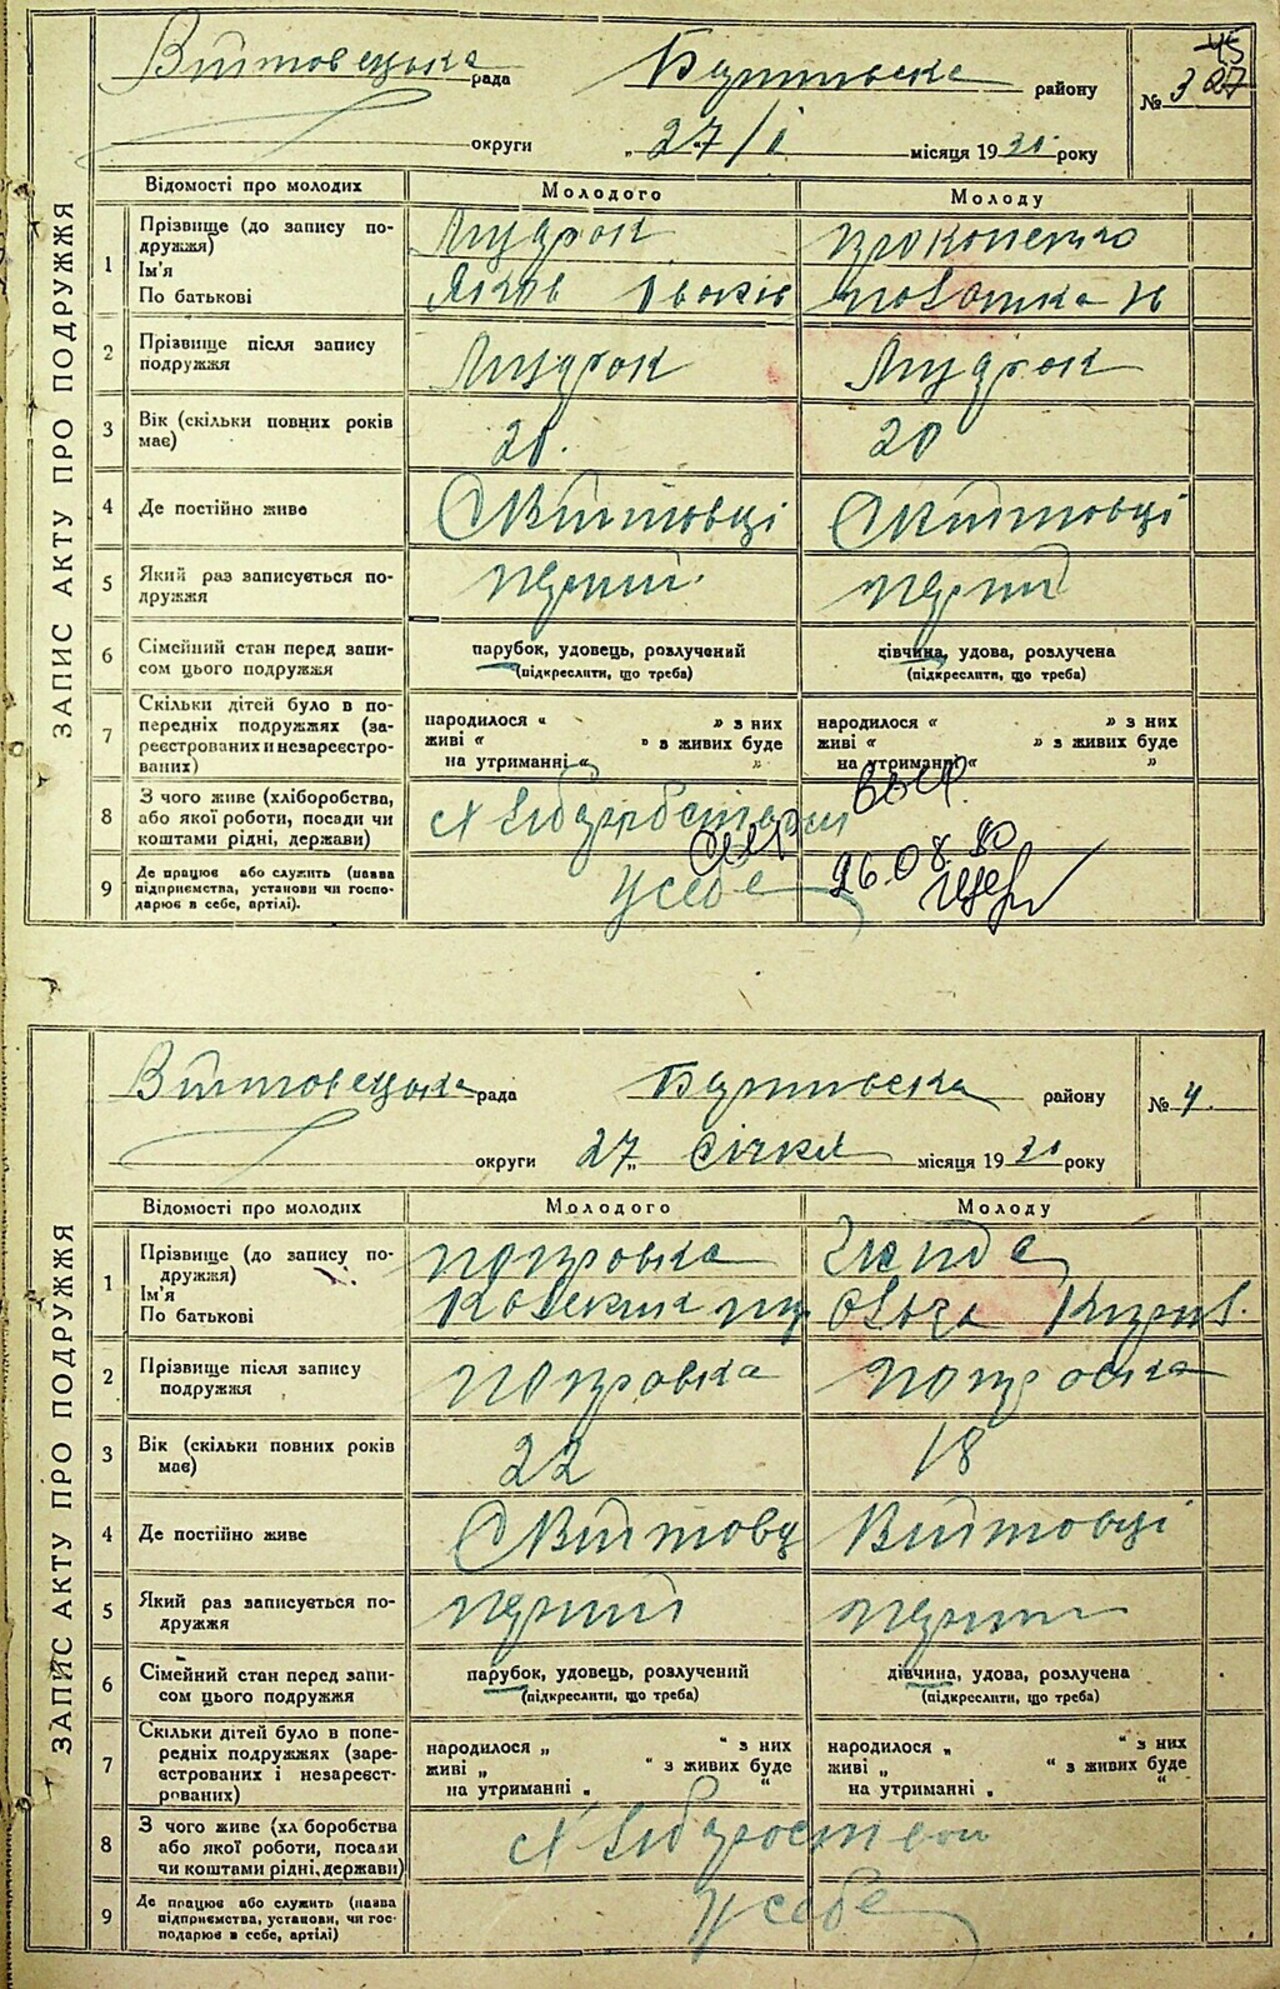 ЗАПИС АКТУ ПРО ПОДРУЖЖЯ
Війтовецька рада району № 3
округи 27/I місяця 1930 року
Відомості про молодих Молодого Молоду
1 Прізвище (до запису по-
дружжя)
Ім'я
По батькові
Мудрок
Яков
2 Прізвище після запису
подружжя
Мудрок Мудрок
3 Вік (скільки повних років
має)
20
4 Де постійно живе
С Війтовці С Війтовці
5 Який раз записується по-
дружжя
перший
6 Сімейний стан перед запи-
сом цього подружжя
парубок, удовець, розлучений
(підкреслити, що треба)
дівчина, удова, розлучена
(підкреслити, що треба)
7 Скільки дітей було в по-
передніх подружжях (за-
реєстрованих и незареєстро-
ваних)
народилося « » з них
живі « » в живих буде
на утриманні « »
народилося « » з них
живі « » з живих буде
на утриманні « »
8 З чого живе (хліборобства,
або якої роботи, посади чи
коштами рідні, держави)
9 Де працює або служить (назва
підприємства, установи чи госпо-
дарює в себе, артілі).
у себе
26.08.80
ЗАПИС АКТУ ПРО ПОДРУЖЖЯ
Війтовецька рада району № 4
округи 27 січня місяця 1930 року
Відомості про молодих Молодого Молоду
1 Прізвище (до запису по-
дружжя)
Ім'я
По батькові
Ольга
2 Прізвище після запису
подружжя
3 Вік (скільки повних років
має)
22 18
4 Де постійно живе
С Війтовц Війтовці
5 Який раз записується по-
дружжя
перший
6 Сімейний стан перед запи-
сом цього подружжя
парубок, удовець, розлучений
(підкреслити, що треба)
дівчина, удова, розлучена
(підкреслити, що треба)
7 Скільки дітей було в попе-
редніх подружжях (заре-
єстрованих і незареєст-
рованих)
народилося „ “ з них
живі „ “ з живих буде
на утриманні „ “
народилося „ “ з них
живі „ “ з живих буде
на утриманні „ “
8 З чого живе (хл боробства
або якої роботи, посади
чи коштами рідні, держави)
9 Де працює або служить (назва
підприємства, установи, чи гос-
подарює в себе, артілі)
у себе